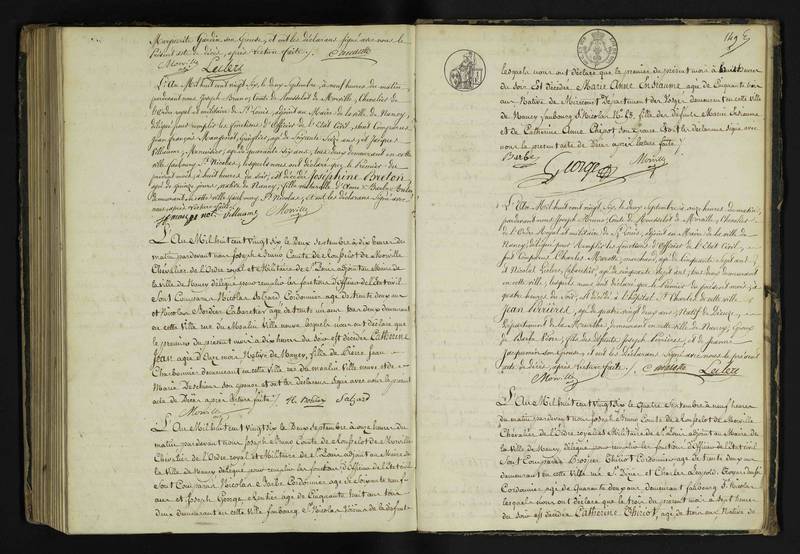 Marguerite Gardin son Epouse, et ont les déclarans signé avec nous le
Présent acte de décès, après lecture faite /.
Morville Leclerc
L'An Mil huit cent vingt Six, le deux Septembre, à neuf heures du matin,
pardevant nous Joseph Bruno Comte de Rousselot de Morville, Chevalier de
l'Ordre royal et militaire de St Louis, adjoint au Maire de la ville de Nancy,
délégué pour remplir les fonctions d'Officier de l'Etat Civil, sont Comparus
Jean François Mangenot, age de Soixante Seize ans, et Jacques
Villaume, Menuisier, agé de quarante six ans, tous deux demeurant en cette
ville, faubourg St Nicolas, lesquels nous ont déclaré que le Premier du
présent mois, à huit heures du soir, est décédée Joséphine Breton,
agée de quinze jours, native de Nancy, fille naturelle d'Anne Breton
Demeurant en cette ville faubourg St Nicolas, et ont les déclarans Signé avec
nous après lecture faite /.
Villaume Morville
L'An Mil huit cent Vingt Six le Deux Septembre à dix heures du
matin pardevant nous Joseph Bruno Comte de Rouselot de Morville
Chévalier de l'Ordre royal et Militaire de St Louis adjoint au Maire de
la Ville de Nancy délégué pour remplir les fonctions d'officier de l'Etat civil
Sont Comparus Nicolas Salzard Cordonnier agé de trente deux ans
et Nicolas Bohier Cabaretier agé de trente un ans tous deux demeurant
en cette Ville rue du Moulin Ville neuve lesquels nous ont déclaré que
le premier du présent mois à dix heures du soir est décédée Catherine
Jean agée d'Onze mois Native de Nancy, fille de Pierre Jean
Charbonnier demeurant en cette Ville rue du moulin Ville neuve et de
Marie Deschiens son epouse et ont les déclarans signé avec nous le présent
acte de Décès après Lecture faite /. N. Bohier Salzard
Morville
L'An Mil huit cent Vingt Six le Deux Septembre à onze heures du
matin pardevant nous Joseph Bruno Comte de Rouselot de Morville
Chévalier de l'Ordre royal et Militaire de St Louis adjoint au Maire de
la Ville de Nancy délégué pour remplir les fonctions d'Officier de l'Etat civil
Sont Comparus Nicolas Barbe Cordonnier agé de soixante neuf
ans et Joseph George Rentier agé de Cinquante huit ans tous
deux demeurant en cette Ville faubourg St Nicolas Voisins de la défunte
149
lesquels nous ont déclaré que le premier du présent mois à huit heures
du soir Est décédée Marie Anne Indiaume agée de Cinquante trois
ans Native de Mirecourt Département des Vosges demeurant en cette Ville
de Nancy faubourg St Nicolas No 63, fille des défunts
et de Catherine Anne Chenot son epouse et ont les déclarans Signé avec
nous le présent acte de Décès après lecture faite /.
Barbe George Morville
L'An Mil huit cent vingt Six, le deux Septembre à onze heures du matin,
pardevant nous Joseph Bruno Comte de Rousselot de Morville, Chevalier
de l'Ordre Royal et militaire de St Louis, adjoint au Maire de la ville de
Nancy, délégué pour Remplir les fonctions d'Officier de l'Etat Civil,
sont Comparus Charles marchand, agé de Cinquante Sept ans,
et Nicolas Leclerc, Cabaretier, agé de cinquante Sept ans, tous deux demeurant
en cette ville, lesquels nous ont déclaré que le Premier du présent mois, à
quatre heures du soir, est décédé à l'hôpital St Charles de cette ville,
Jean agé de quatre vingt deux ans, Natif de Dieuze,
Département de la Meurthe, demeurant en cette ville de Nancy, Epoux
de Barbe fils des défunts Joseph et de Jeanne
Jacquemin son Epouse, et ont les déclarans Signé avec nous le présent
acte de Décès, après lecture faite /. Leclerc
Morville
L'An Mil huit cent Vingt Six le Quatre Septembre à neuf heures
du matin pardevant nous Joseph Bruno Comte de Rouselot de Morville
Chévalier de l'Ordre royal et Militaire de St Louis adjoint au Maire de
la Ville de Nancy, délégué pour remplir les fonctions d'Officier de l'Etat civil
Sont Comparus Thiriot Cordonnier agé de trente deux ans
demeurant en cette Ville rue St Dizier et Charles Léopold
Cordonnier agé de quarante deux ans demeurant faubourg St Nicolas
lesquels nous ont déclaré que le trois du présent mois à sept heures
du soir est décédée Catherine Thiriot, agée de trois ans Native de